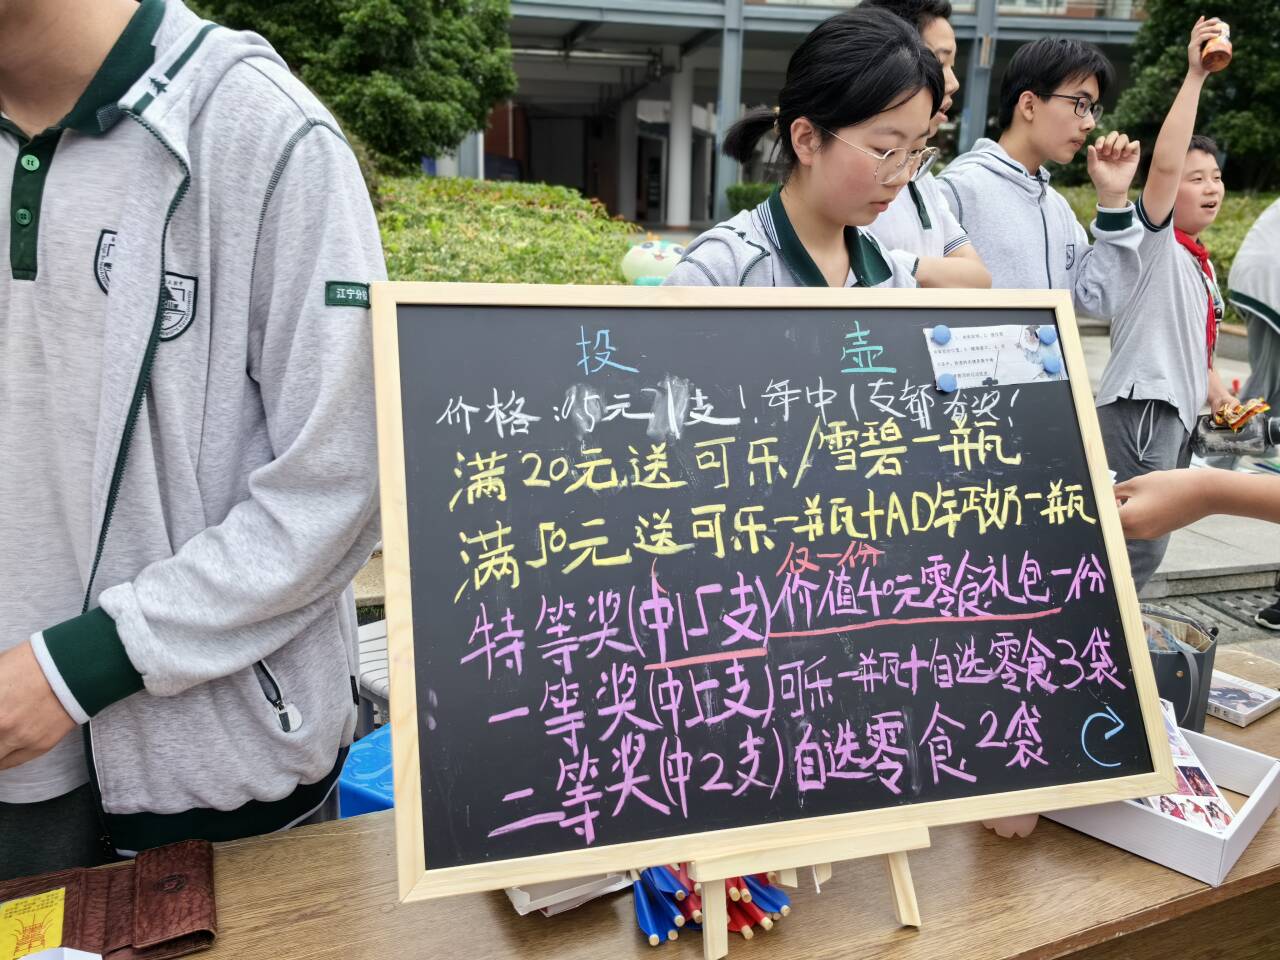 江宁分校
投 壶
价格:05元1支!每中1支都有奖!
满20元送可乐/雪碧一瓶
满50元送可乐一瓶+AD钙奶一瓶
仅一份
特等奖(中15支)价值40元零食礼包一份
一等奖(中5支)可乐一瓶+自选零食3袋
二等奖(中2支)自选零食2袋